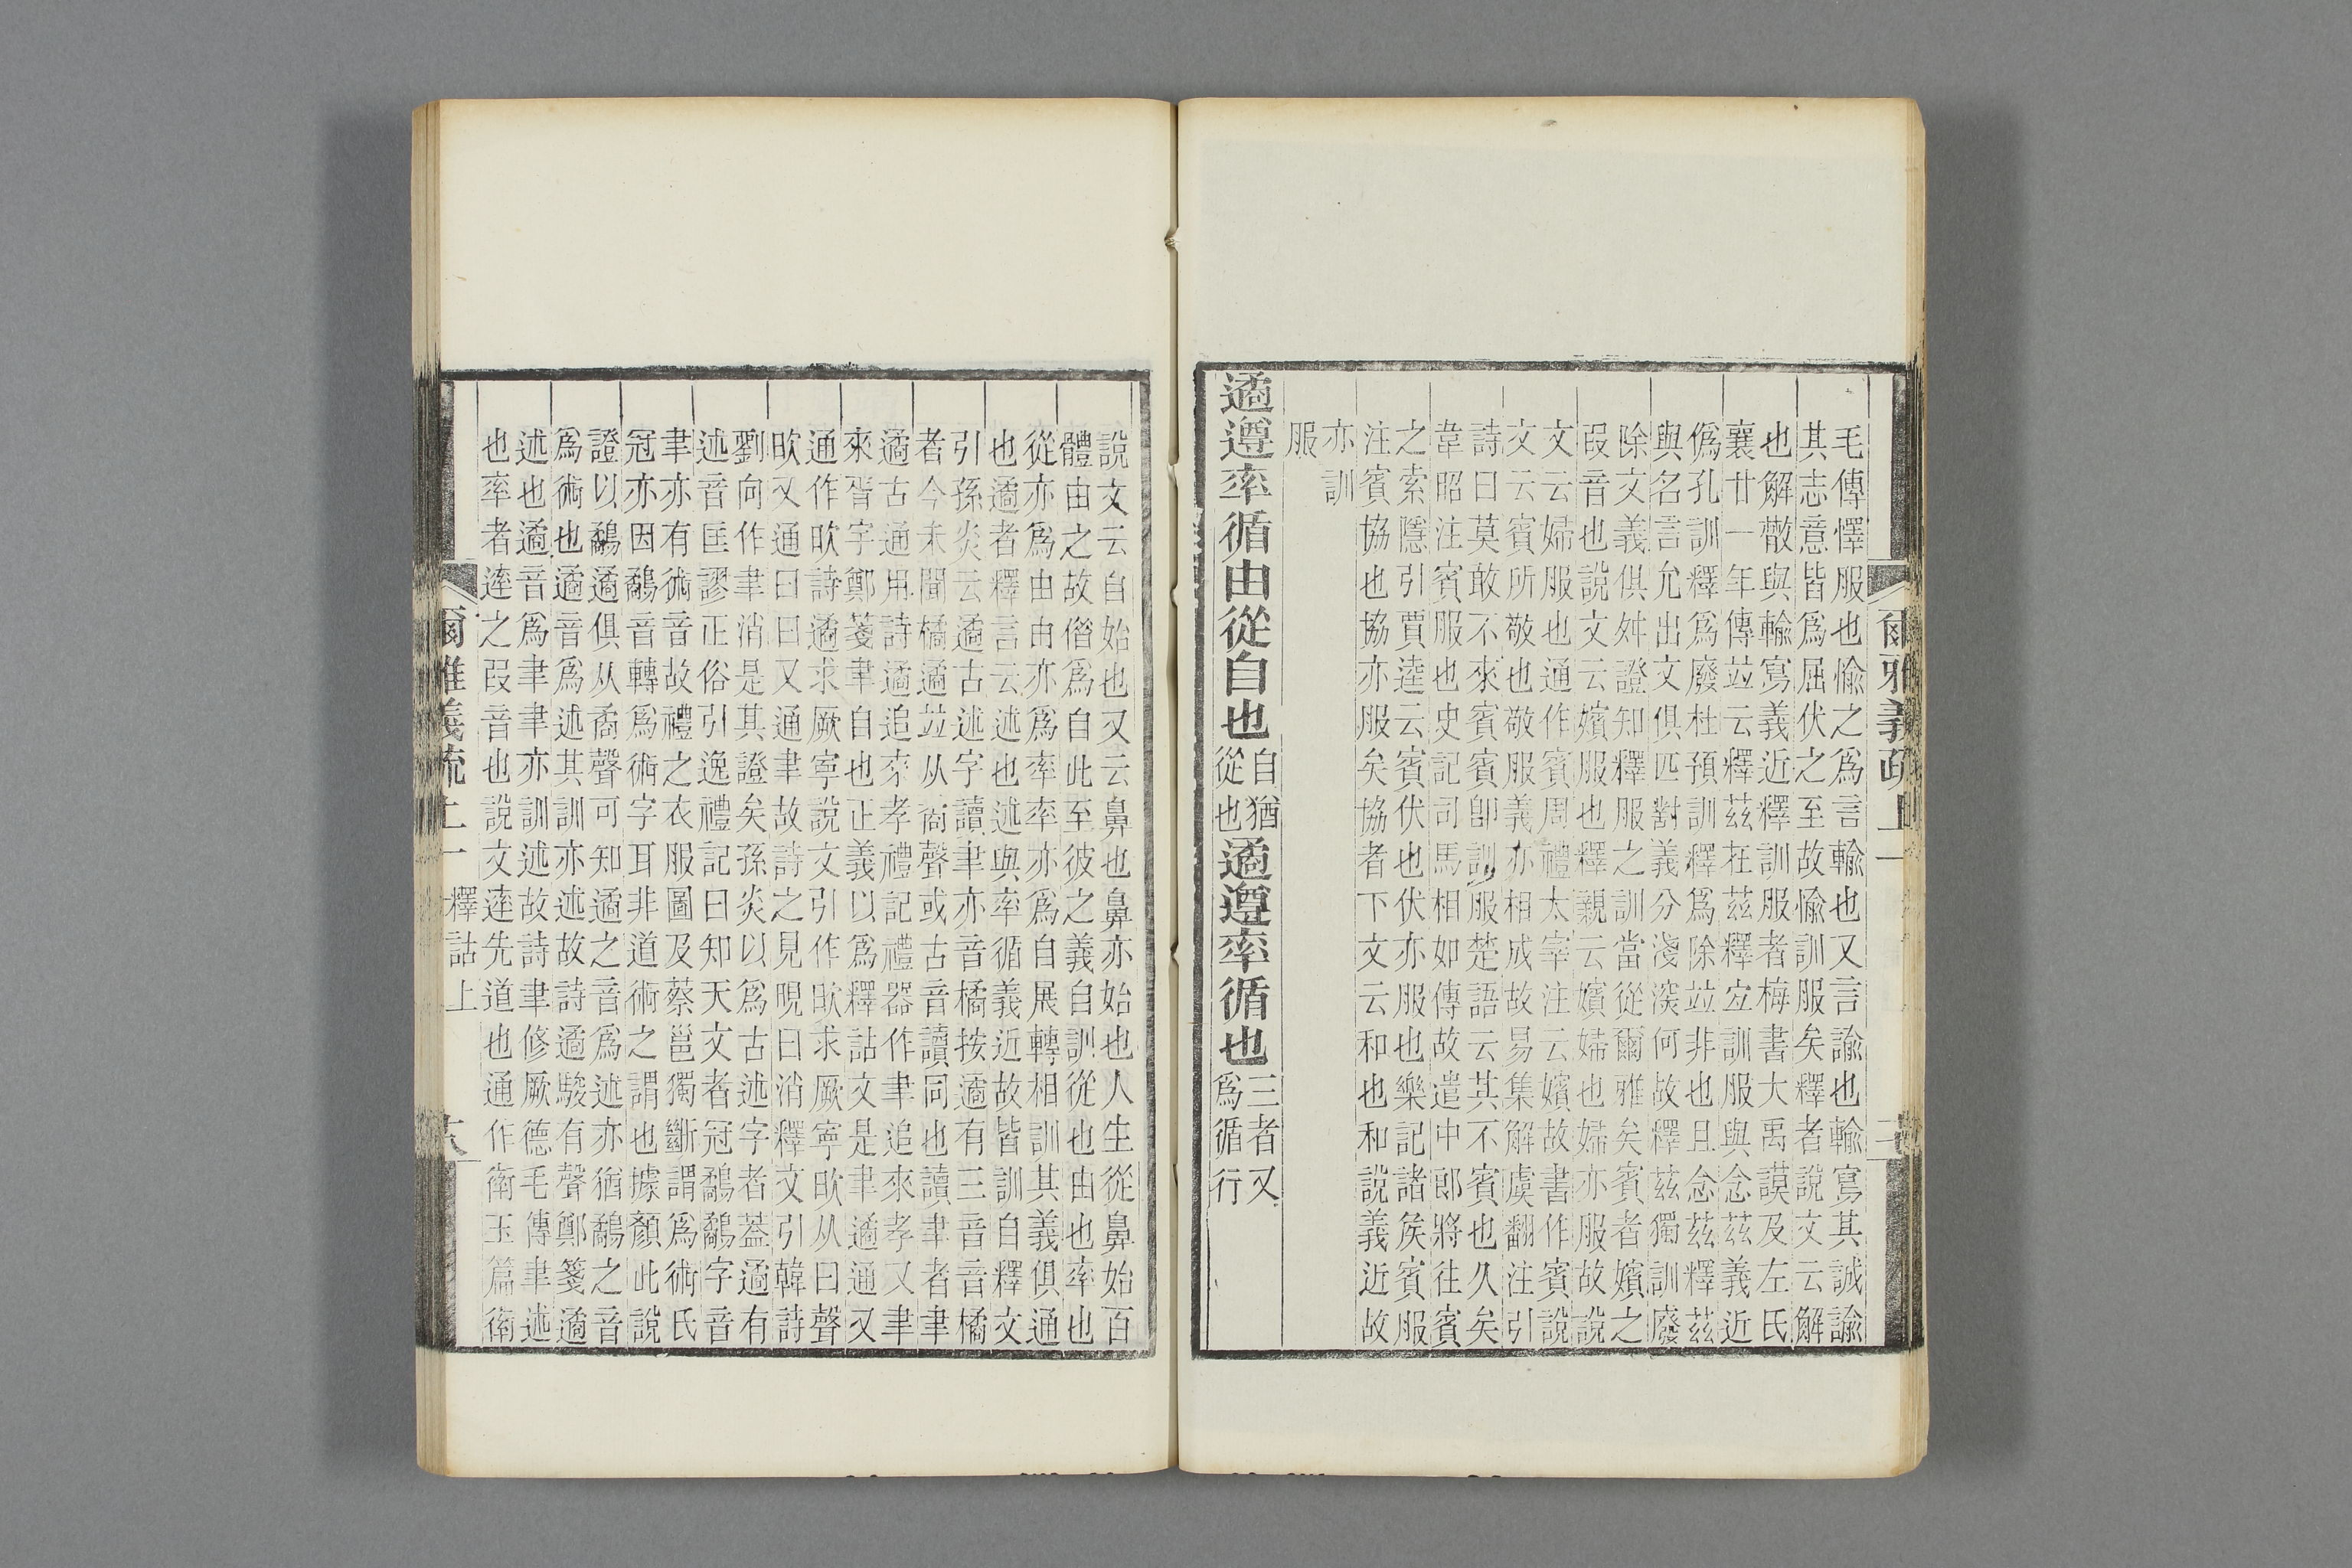 爾雅義疏上一
毛傳懌服也愉之爲言輸也又言諭也輸寫其誠諭
其志意皆爲屈伏之至故愉訓服矣釋者說文云解
也解散與輸寫義近釋訓服者梅書大禹謨及左氏
襄廿一年傳竝云釋茲在茲釋宐訓服與念茲義近
僞孔訓釋爲廢杜預訓釋爲除竝非也且念茲釋茲
與名言允出文俱匹對義分淺深何故釋茲獨訓廢
除文義俱舛證知釋服之訓當從爾雅矣賓者嬪之
叚音也說文云嬪服也釋親云嬪婦也婦亦服故說
文云婦服也通作賓周禮太宰注云嬪故書作賓說
文云賓所敬也敬服義亦相成故易集解虞翻注引
詩曰莫敢不來賓賓卽訓服楚語云其不賓也久矣
韋昭注賓服也史記司馬相如傳故遣中郎將往賓
之索隱引賈逵云賓伏也伏亦服也樂記諸矦賓服
注賓協也協亦服矣協者下文云和也和說義近故
亦訓
服
遹遵率循由從自也
自猶
從也
遹遵率循也
三者又
爲循行
說文云自始也又云鼻也鼻亦始也人生從鼻始百
體由之故偺爲自此至彼之義自訓從也由也率也
從亦爲由由亦爲率率亦爲自展轉相訓其義俱通
也遹者釋言云述也述與率循義近故皆訓自釋文
引孫炎云遹古述字讀聿亦音橘按遹有三音音橘
者今未聞橘遹竝从矞聲或古音讀同也讀聿者聿
遹古通用詩遹追來孝禮記禮器作聿追來孝又聿
來胥宇鄭箋聿自也正義以爲釋詁文是聿遹通又
通作欥詩遹求厥寧說文引作欥求厥寧欥从曰聲
欥又通曰曰又通聿故詩之見晛曰消釋文引韓詩
劉向作聿消是其證矣孫炎以爲古述字者葢遹有
述音匡謬正俗引逸禮記曰知天文者冠鷸鷸字音
聿亦有術音故禮之衣服圖及蔡邕獨斷謂爲術氏
冠亦因鷸音轉爲術字耳非道術之謂也據顏此說
證以鷸遹俱从矞聲可知遹之音爲述亦猶鷸之音
爲術也遹音爲述其訓亦述故詩遹駿有聲鄭箋遹
述也遹音爲聿聿亦訓述故詩聿修厥德毛傳聿述
也率者𨔞之叚音也說文𨔞先道也通作䘏玉篇䘏
爾雅義疏上一　釋詁上